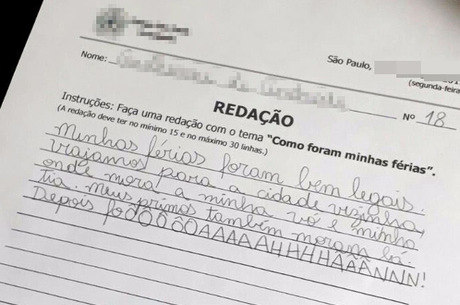 São Paulo,
(segunda-feira
Nome:
Nº 18
REDAÇÃO
Instruções: Faça uma redação com o tema "Como foram minhas férias".
(A redação deve ter no mínimo 15 e no máximo 30 linhas.)
Minhas férias foram bem legais.
viajamos para a cidade vizinha,
onde mora a minha vó e minha
tia. Meus primos também moram lá.
Depois foOOÔÔAAAAAHHHHÃÃÃNNN!